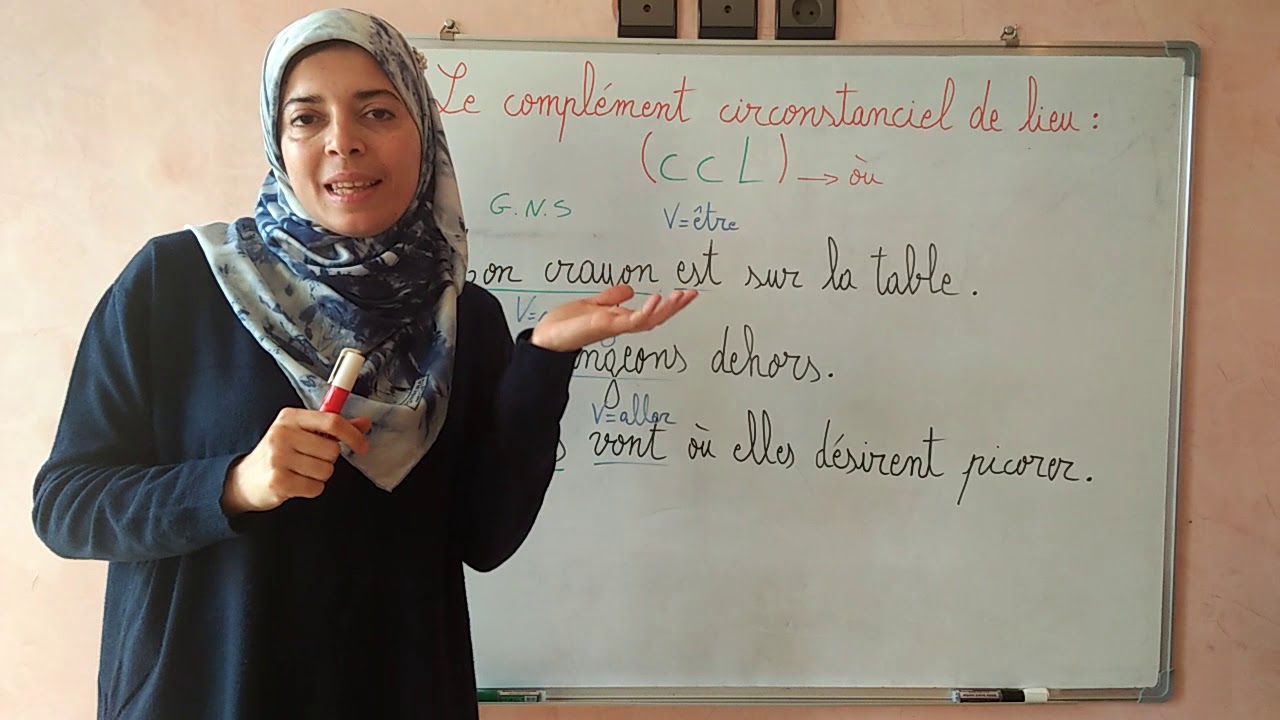 Le complément circonstanciel de lieu :
(CCL) → où
G.N.S
V=être
crayon est sur la table.
V=
dehors.
V=aller
vont où elles désirent picorer.